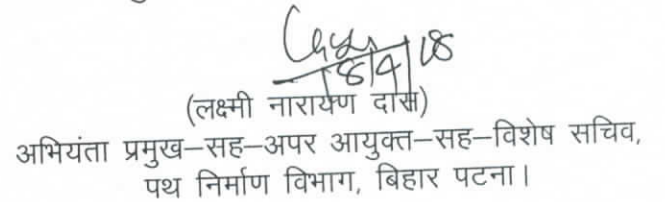 8/4/18
(लक्ष्मी नारायण दास)
अभियंता प्रमुख–सह–अपर आयुक्त–सह–विशेष सचिव,
पथ निर्माण विभाग, बिहार पटना।